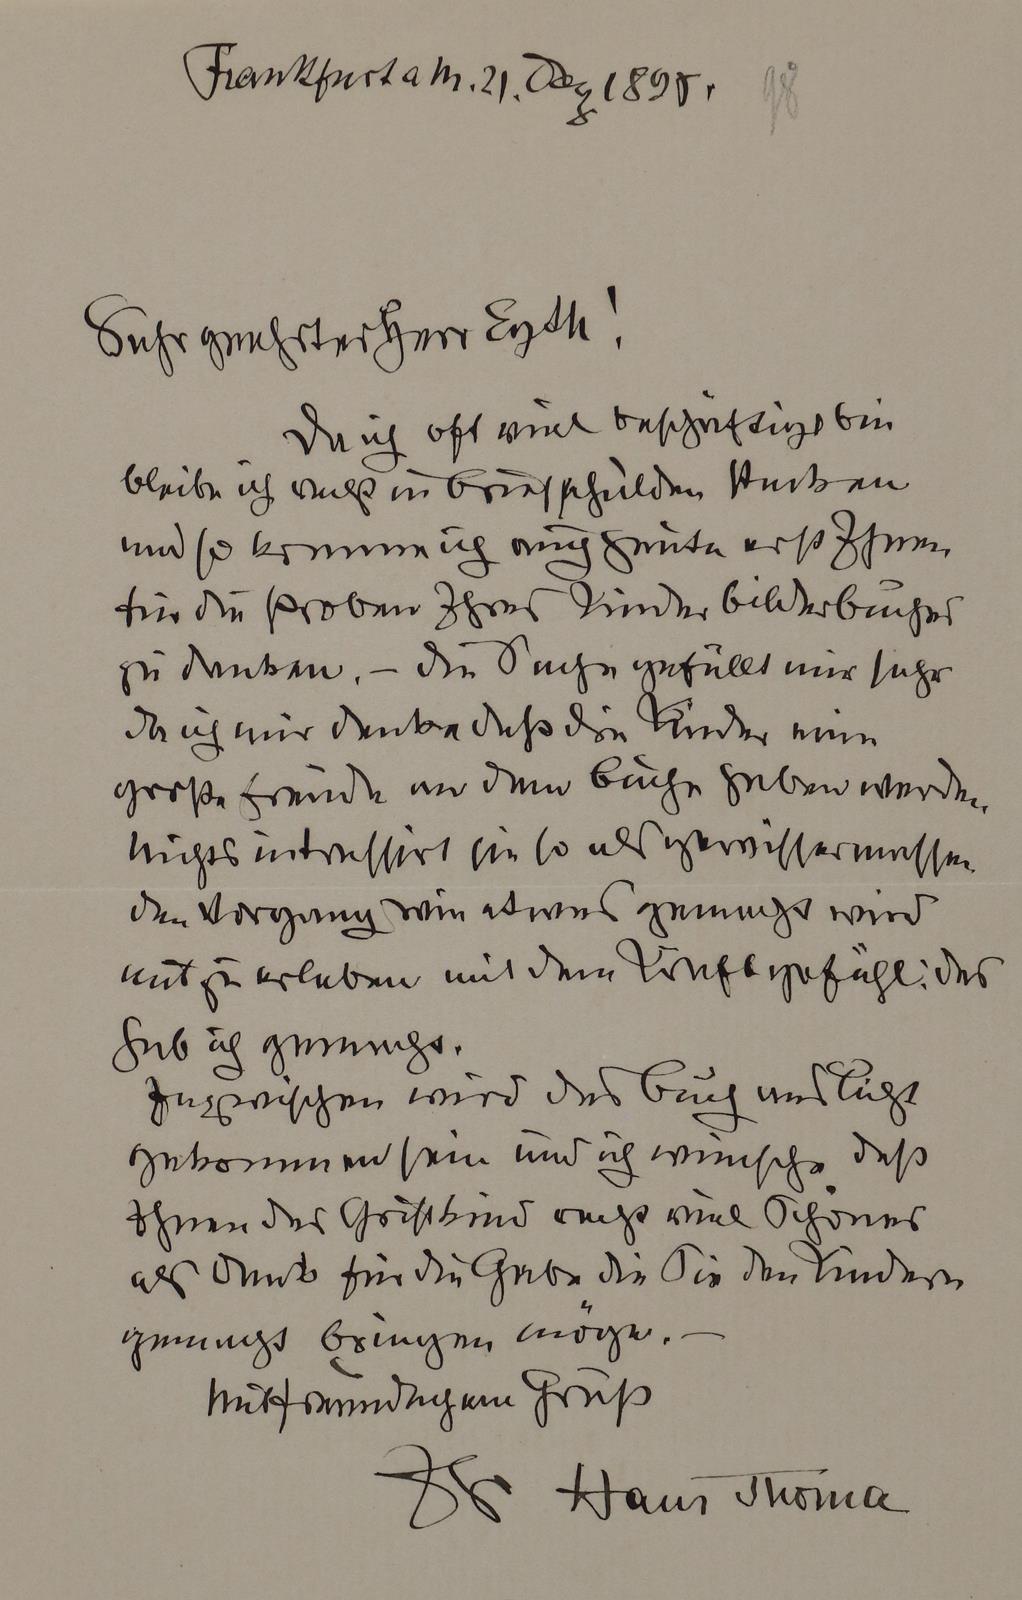 Frankfurt a M. 21. Dez 1898. 98
Sehr geehrter Herr Eyth!
Da ich oft viel beschäftigt bin
bleibe ich recht in Briefschulden stecken
und so komme ich auch heute erst Ihnen
für die Proben Ihres Kinderbilderbuches
zu danken. – die Sache gefällt mir sehr
da ich mir denke daß die Kinder eine
große Freude an dem Buche haben werden
Nichts intressirt sie so als gewissermassen
den Vorgang wie etwas gemacht wird
mit zu erleben mit dem Kraftgefühl: das
hab ich gemacht.
Inzwischen wird das Buch ans Licht
gekommen sein und ich wünsche daß
Ihnen das Christkind recht viel Schönes
als Dank für die Gabe die Sie den Kindern
gemacht bringen möge. –
Mit freundlichem Gruß
Ihr Hans Thoma